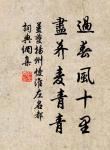 過春風十里
盡薺麥青青
姜夔揚州慢淮左名都
詞典網集